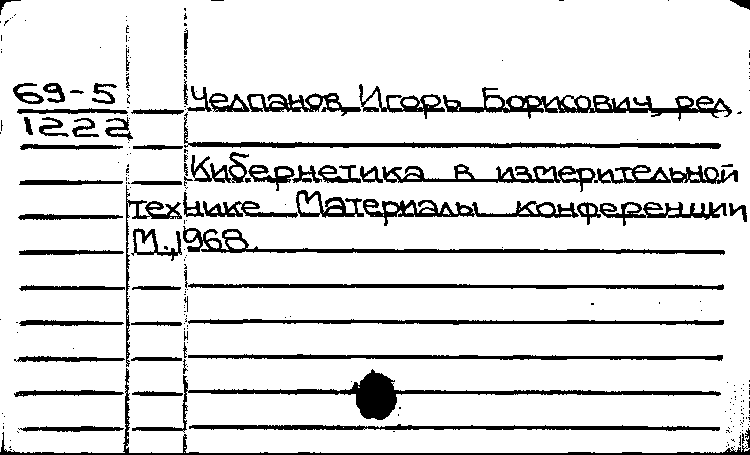 69-5 Челпанов, Игорь Борисович, ред.
1222
Кибернетика в измерительной
технике. Материалы конференции
М., 1968.